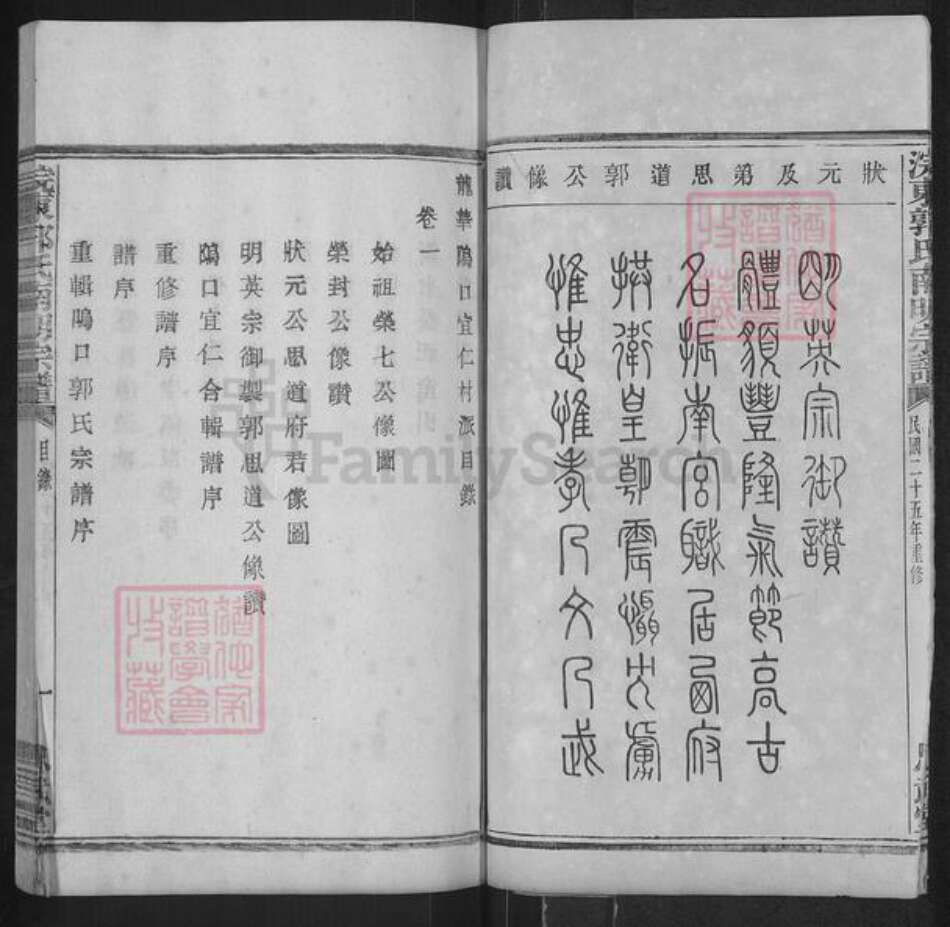 狀元及第思道郭公像讚
明英宗御讚
體貌豐隆氣節高古
名振南宮職居囱府
拱衛皇朝震懾夷虜
惟忠惟孝乃文乃武
郭氏南明宗譜
民國二十五年重修
龍華隝口宜仁村派目錄
卷一
始祖榮七公像圖
榮封公像讚
狀元公思道府君像圖
明英宗御製郭思道公像讚
隝口宜仁合輯譜序
重修譜序
譜序
重輯隝口郭氏宗譜序
目錄
一
譜學會
收藏
FamilySearch